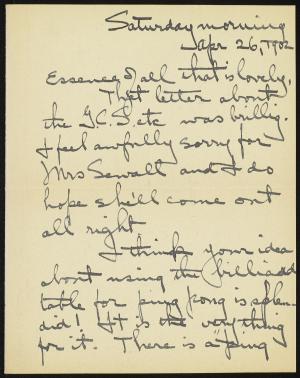 Saturday morning
Apr 26, 1902
Essence of all that is lovely,
That letter about
the G.C.S. etc was brillig.
I feel awfully sorry for
Mrs Sewalt and I do
hope she'll come out
all right.
I think your idea
about using the billiard
table for ping pong is splen-
did! It is the very thing
for it. There is a "ping